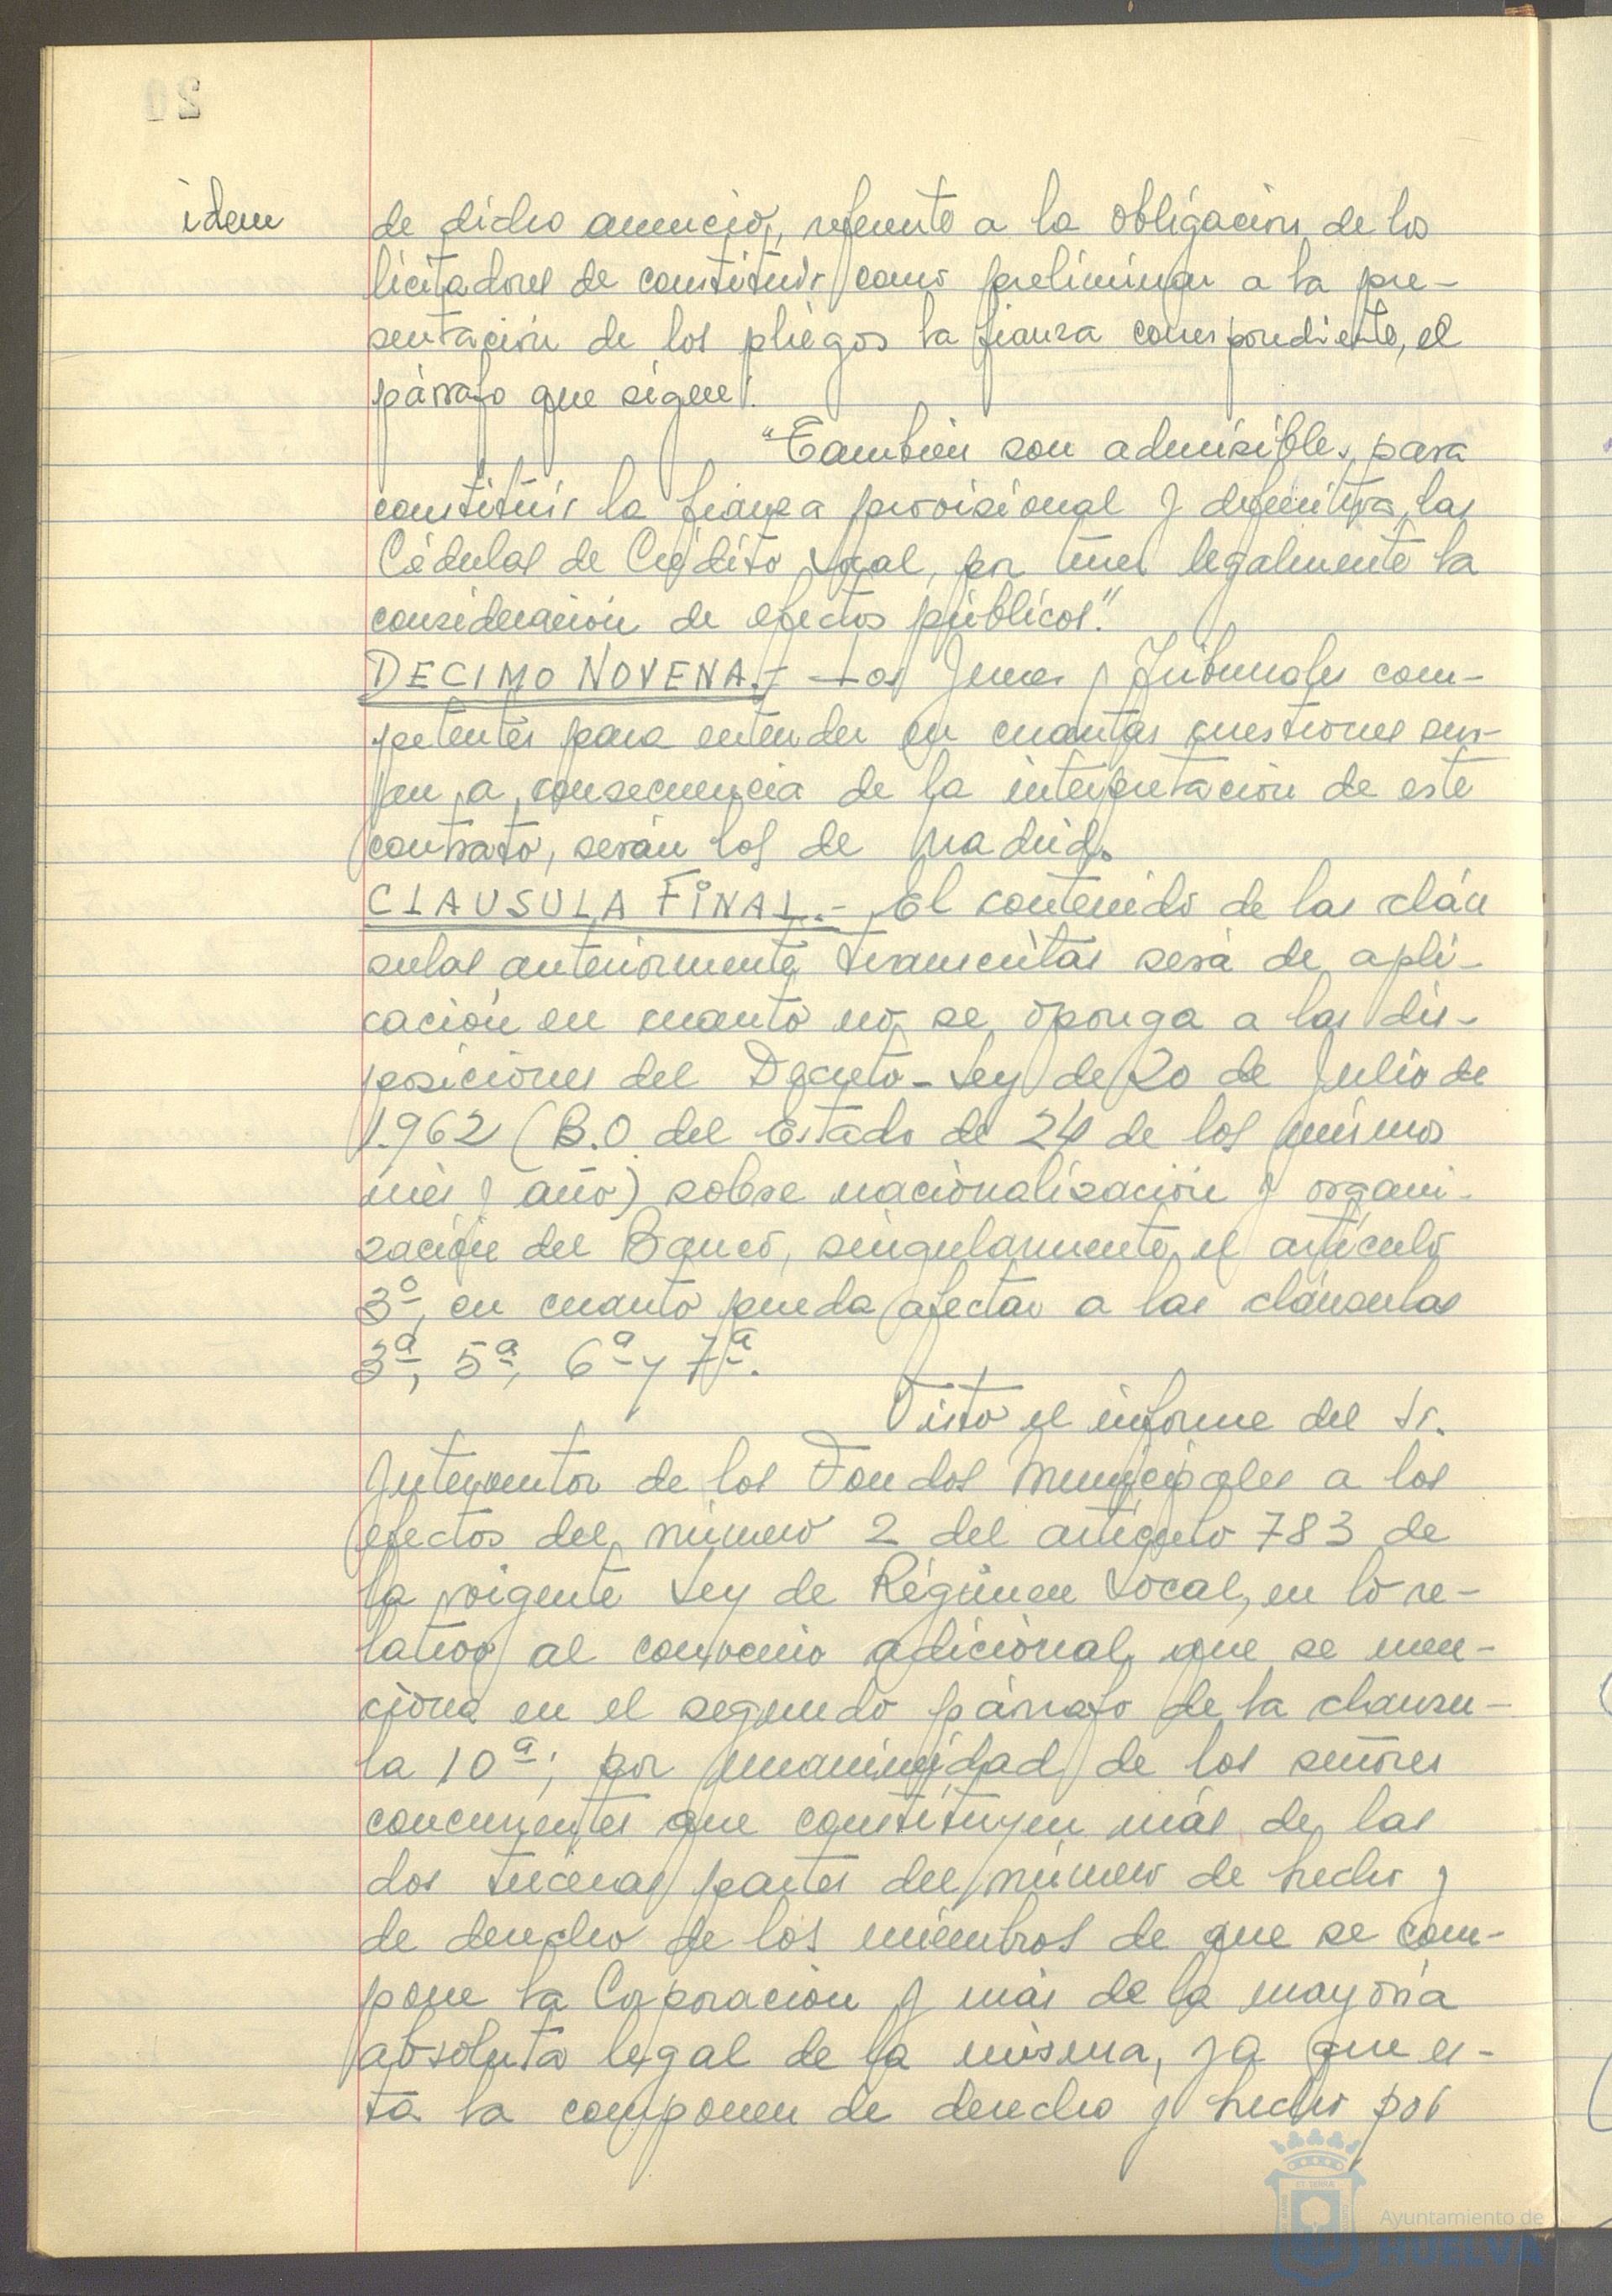 20
idem
de dicho anuncio, referente a la obligación de los
licitadores de constituir como preliminar a la pre-
sentación de los pliegos la fianza correspondiente, el
párrafo que sigue:
"También son admisibles para
constituir la fianza provisional y definitiva, las
Cédulas de Crédito Local, por tener legalmente la
consideración de efectos públicos."
DECIMO NOVENA.- Los Jueces y Tribunales com-
petentes para entender en cuantas cuestiones sur-
jan a consecuencia de la interpretación de este
contrato, serán los de Madrid.
CLAUSULA FINAL.- El contenido de las cláu
sulas anteriormente transcritas será de apli-
cación en cuanto no se oponga a las dis-
posiciones del Decreto-Ley de 20 de Julio de
1.962 (B.O. del Estado de 24 de los mismos
mes y año) sobre nacionalización y organi-
zación del Banco, singularmente el artículo
3º, en cuanto pueda afectar a las cláusulas
3ª, 5ª, 6ª y 7ª.
Visto el informe del Sr.
Interventor de los Fondos Municipales a los
efectos del número 2 del artículo 783 de
la vigente Ley de Régimen Local, en lo re-
lativo al convenio adicional que se men-
ciona en el segundo párrafo de la clausu-
la 10ª; por unanimidad de los señores
concurrentes que constituyen más de las
dos terceras partes del número de hecho y
de derecho de los miembros de que se com-
pone la Corporación y más de la mayoría
absoluta legal de la misma, ya que es-
ta la componen de derecho y hecho por
Ayuntamiento de
HUELVA